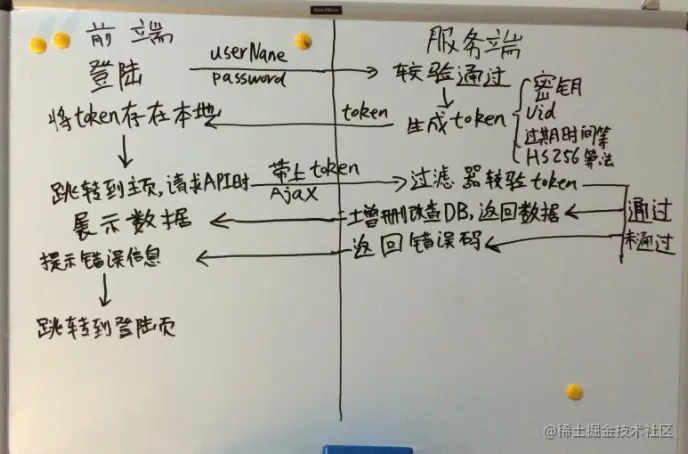 前端
服务端
登陆
userName
password
较验通过
将token存在本地
token
生成token
密钥
Uid
过期时间等
HS256算法
跳转到主页,请求API时
带上token
AjaX
过滤器较验token
展示数据
增删改查DB,返回数据
通过
提示错误信息
返回错误码
未通过
跳转到登陆页
@稀土掘金技术社区